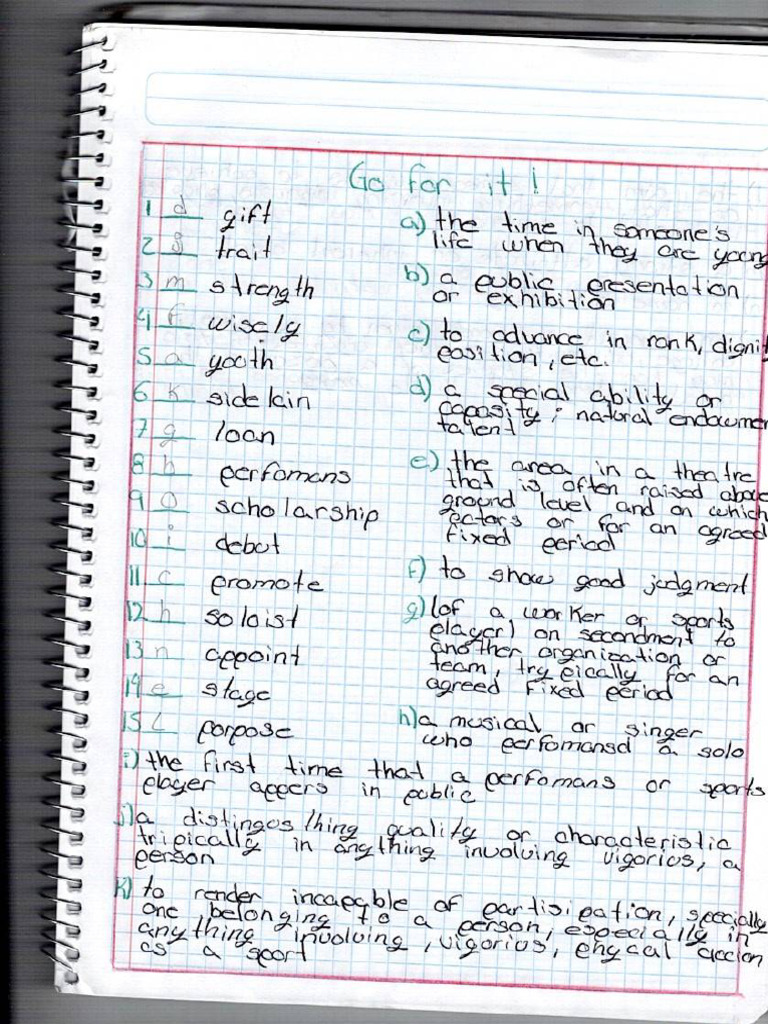 Go for it!
1 d gift
2 g trait
3 m strength
4 f wisely
5 a yooth
6 k sidelain
7 g loan
8 b perfomans
9 o scholarship
10 i debut
11 c promote
12 h soloist
13 n appoint
14 e stage
15 L porpose
a) the time in someone's
life when they are young
b) a public presentation
or exhibition
c) to advance in rank, dignit
position, etc.
d) a special ability or
capasity; natural endowmen
talent
e) the area in a theatre
that is often raised above
ground level and on which
actors or for an agreed
fixed period
f) to show good judgment
g) (of a worker or sports
player) on secondment to
another organization or
team, trypically for an
agreed fixed period
h) a musical or singer
who perfomansd a solo
i) the first time that a perfomans or sports
player appers in public
j) a distingos thing quality or characteristic
tripically in anything involving vigorius, a
person
k) to render incapable of partisipation, specially
one belonging to a person, especially in
anything involving, vigorius, phycal accion
as a sport